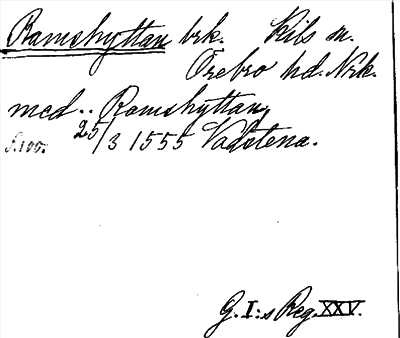 Ramshyttan brk. Kils sn.
Örebro hd. Nrk.
med .. Ramshyttan,
25/3 1555 Vadstena.
s. 100.
G. I:s Reg. XXV.